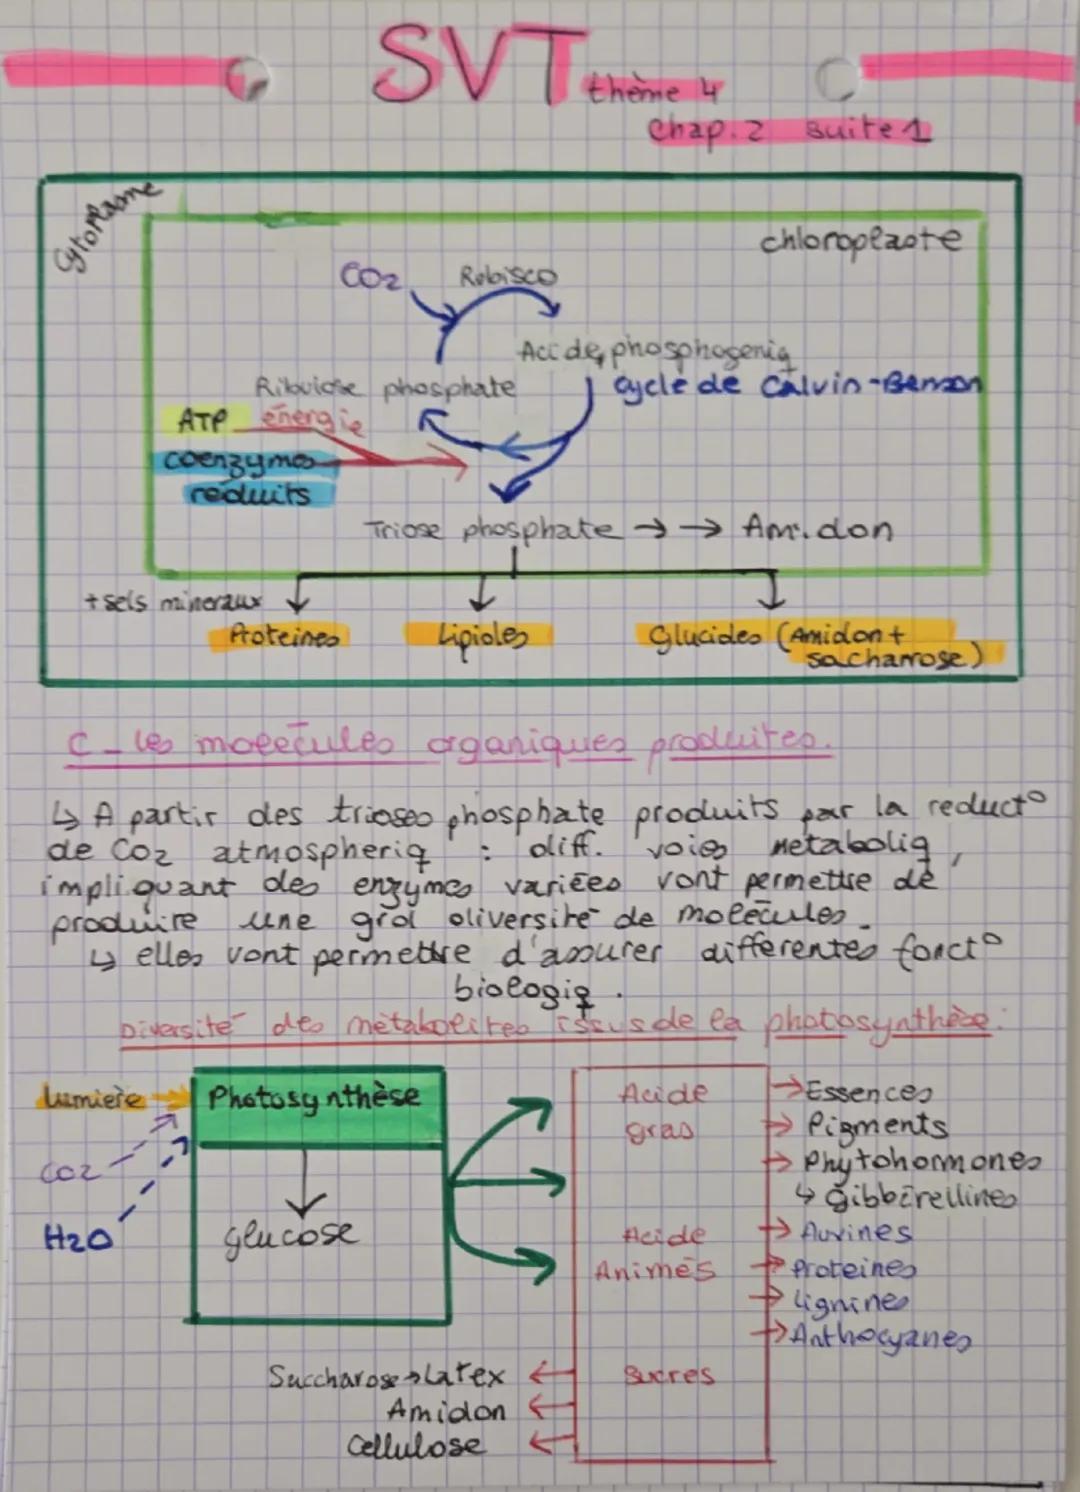 SVT
thème 4
chap. 2 suite 1
cytoplasme
chloroplaste
CO2 Rubisco
Acide phosphogeniq
Ribulose phosphate cycle de Calvin-Benson
ATP énergie
coenzymes
réduits
Triose phosphate → → Amidon
+ sels mineraux
Proteines Lipides Glucides (Amidon +
saccharrose)
C - les molécules organiques produites.
↳ A partir des trioses phosphate produits par la reduct°
de CO2 atmospheriq : diff. voies metaboliq,
impliquant des enzymes variées vont permettre de
produire une grd diversité de molécules.
↳ elles vont permettre d'assurer differentes fonct°
biologiq.
Diversité des métabolites issus de la photosynthèse:
Lumière Photosynthèse Acide → Essences
gras → Pigments
CO2 → Phytohormones
↳ Gibbérellines
H2O glucose Acide → Auxines
Animés → Proteines
→ Lignines
→ Anthocyanes
Succharose → Latex ← Sucres
Amidon ←
Cellulose ←